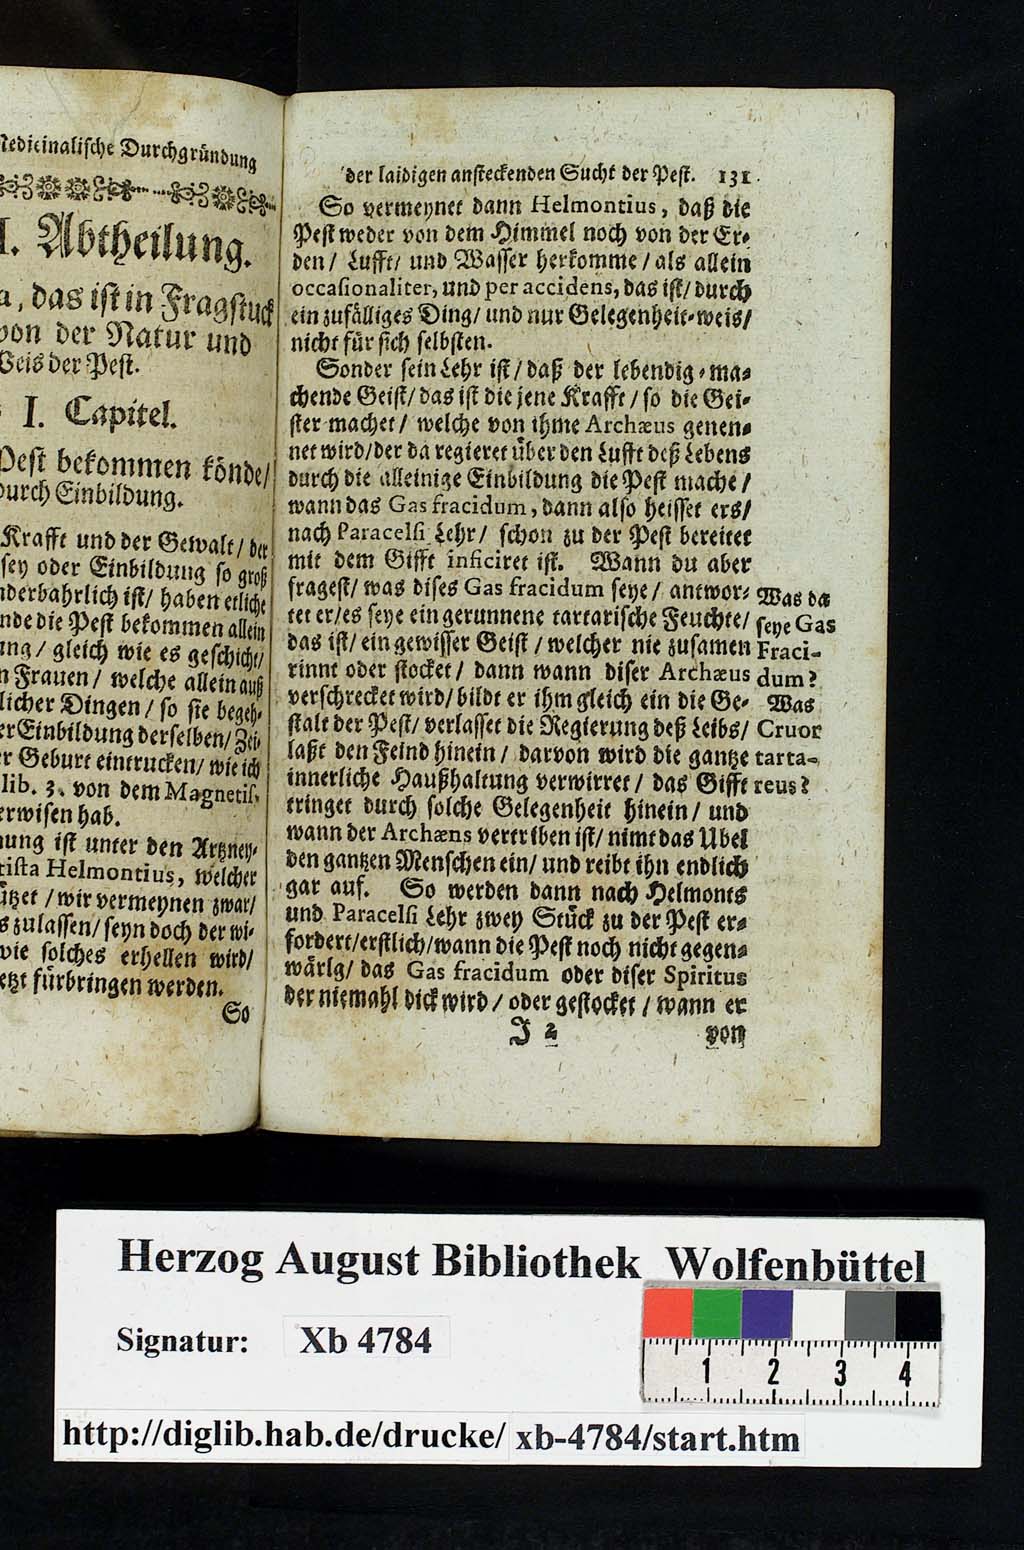 Medicinalische Durchgründung
I. Abtheilung.
a, das ist in Fragstuck
von der Natur und
Weis der Pest.
I. Capitel.
Pest bekommen könde/
durch Einbildung.
Krafft und der Gewalt/ der
sey oder Einbildung so groß
nderbahrlich ist/ haben etliche
nde die Pest bekommen allein
ung/ gleich wie es geschicht/
n Frauen/ welche allein auß
licher Dingen/ so sie begeh-
er Einbildung derselben/ Zei-
r Geburt eintrucken/ wie ich
lib. 3. von dem Magnetis-
erwisen hab.
nung ist unter den Artzney-
tista Helmontius, welcher
ützet/ wir vermeynen zwar/
s zulassen/ seyn doch der wi-
wie solches erhellen wird/
etzt fürbringen werden.
So
der laidigen ansteckenden Sucht der Pest. 131.
So vermeynet dann Helmontius, daß die
Pest weder von dem Himmel noch von der Er-
den/ Lufft/ und Wasser herkomme/ als allein
occasionaliter, und per accidens, das ist/ durch
ein zufälliges Ding/ und nur Gelegenheit-weis/
nicht für sich selbsten.
Sonder sein Lehr ist/ daß der lebendig-ma-
chende Geist/ das ist die jene Krafft/ so die Gei-
ster machet/ welche von ihme Archæus genen-
net wird/ der da regieret über den Lufft deß Lebens
durch die alleinige Einbildung die Pest mache/
wann das Gas fracidum, dann also heisset ers/
nach Paracelsi Lehr/ schon zu der Pest bereitet
mit dem Gifft inficiret ist. Wann du aber
fragest/ was dises Gas fracidum seye/ antwor-
tet er/ es seye ein gerunnene tartarische Feuchte/
das ist/ ein gewisser Geist/ welcher nie zusamen
rinnt oder stocket/ dann wann diser Archæus
verschrecket wird/ bildt er ihm gleich ein die Ge-
stalt der Pest/ verlasset die Regierung deß Leibs/
laßt den Feind hinein/ darvon wird die gantze
innerliche Haußhaltung verwirret/ das Gifft
tringet durch solche Gelegenheit hinein/ und
wann der Archæns vertriben ist/ nimt das Ubel
den gantzen Menschen ein/ und reibt ihn endlich
gar auf. So werden dann nach Helmonts
und Paracelsi Lehr zwey Stück zu der Pest er-
fordert/ erstlich/ wann die Pest noch nicht gegen-
wärlg/ das Gas fracidum oder diser Spiritus
der niemahl dick wird/ oder gestocket/ wann er
J 2 von
Was da
seye Gas
Fraci-
dum?
Was
Cruor
tarta-
reus?
Herzog August Bibliothek Wolfenbüttel
Signatur: Xb 4784
1 2 3 4
http://diglib.hab.de/drucke/ xb-4784/start.htm